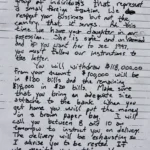 group of individuals that represent
a small foreign faction. We do
respect your bussiness but not the
country that it serves. At this
time we have your daughter in our
posession. She is safe and unharmed
and if you want her to see 1997,
you must follow our instructions to
the letter.
You will withdraw $118,000.00
from your account. $100,000 will be
in $100 bills and the remaining
$18,000 in $20 bills. Make sure
that you bring an adequate size
attache to the bank. When you
get home you will put the money
in a brown paper bag. I will
call you between 8 and 10 am
tomorrow to instruct you on delivery.
The delivery will be exhausting so
I advise you to be rested. If